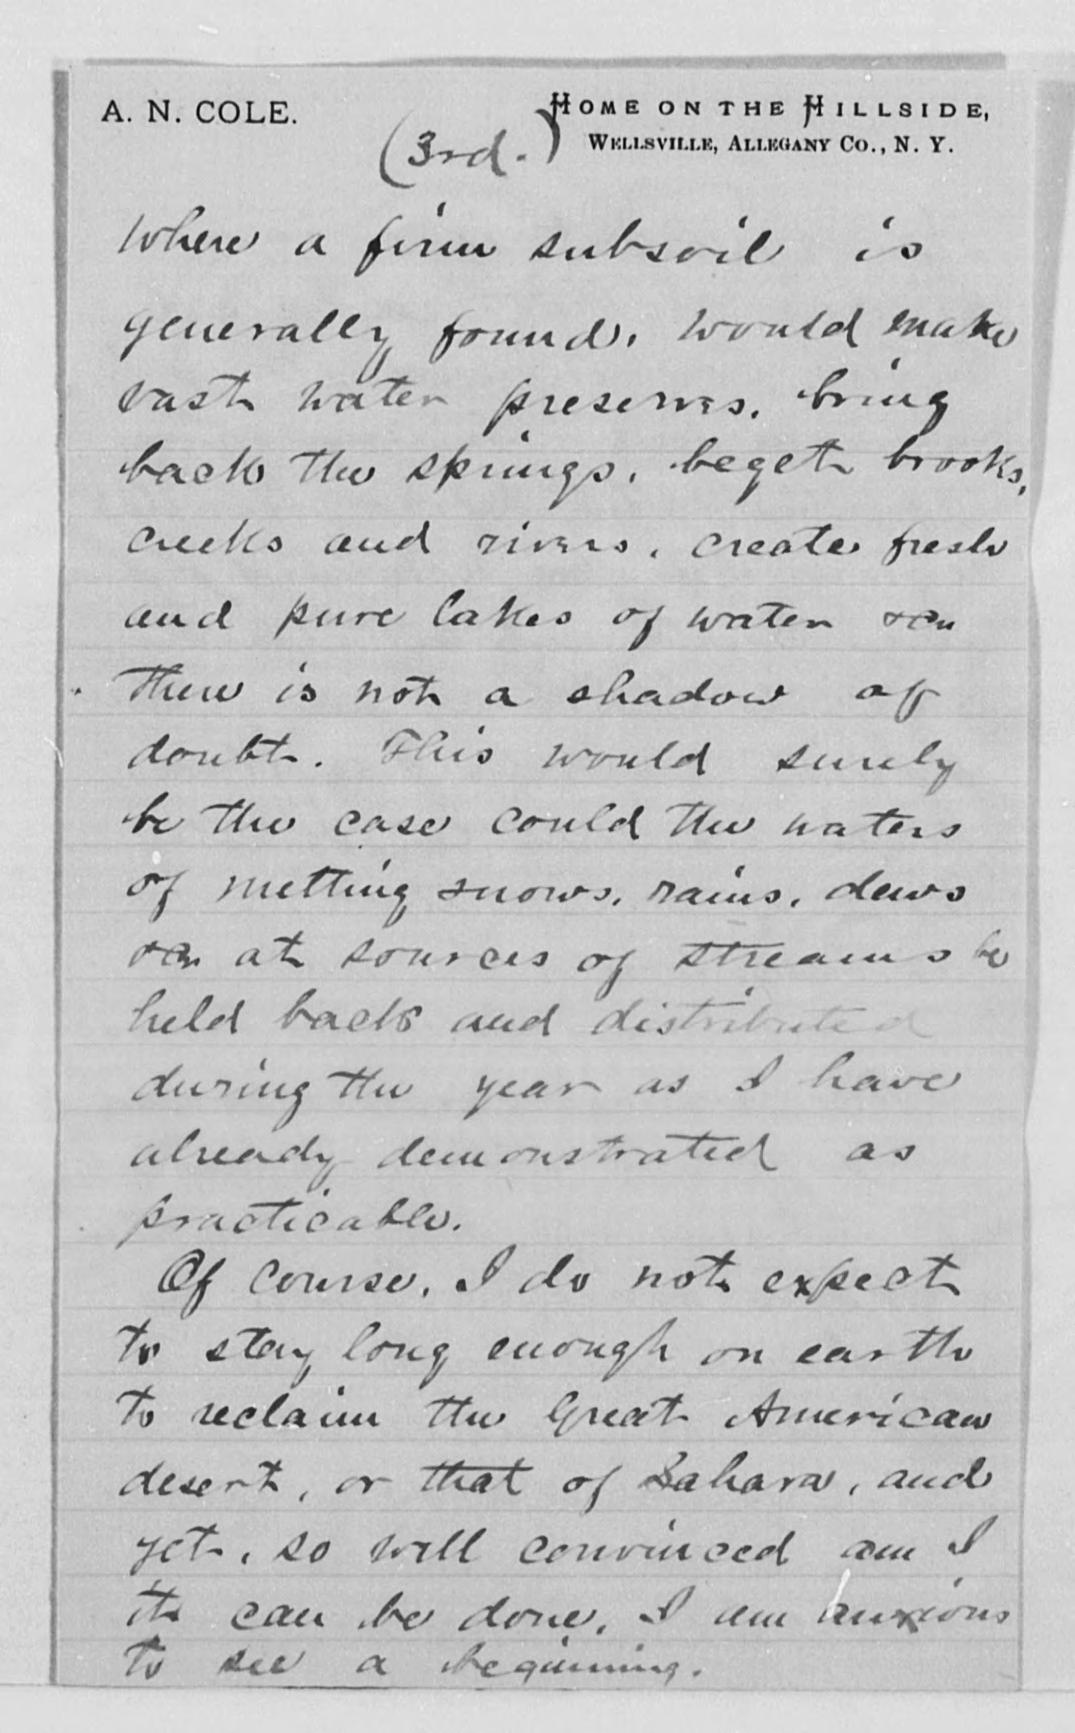 A. N. COLE.
HOME ON THE HILLSIDE,
WELLSVILLE, ALLEGANY CO., N. Y.
(3rd.)
where a firm subsoil is
generally found, would make
vast water preserves, bring
back the springs, beget brooks,
creeks and rivers, create fresh
and pure lakes of water &c
there is not a shadow of
doubt. This would surely
be the case could the waters
of melting snows, rains, dews
&c at sources of streams be
held back and distributed
during the year as I have
already demonstrated as
practicable.
Of course, I do not expect
to stay long enough on earth
to reclaim the Great American
desert, or that of Sahara, and
yet, so well convinced am I
it can be done, I am anxious
to see a beginning.